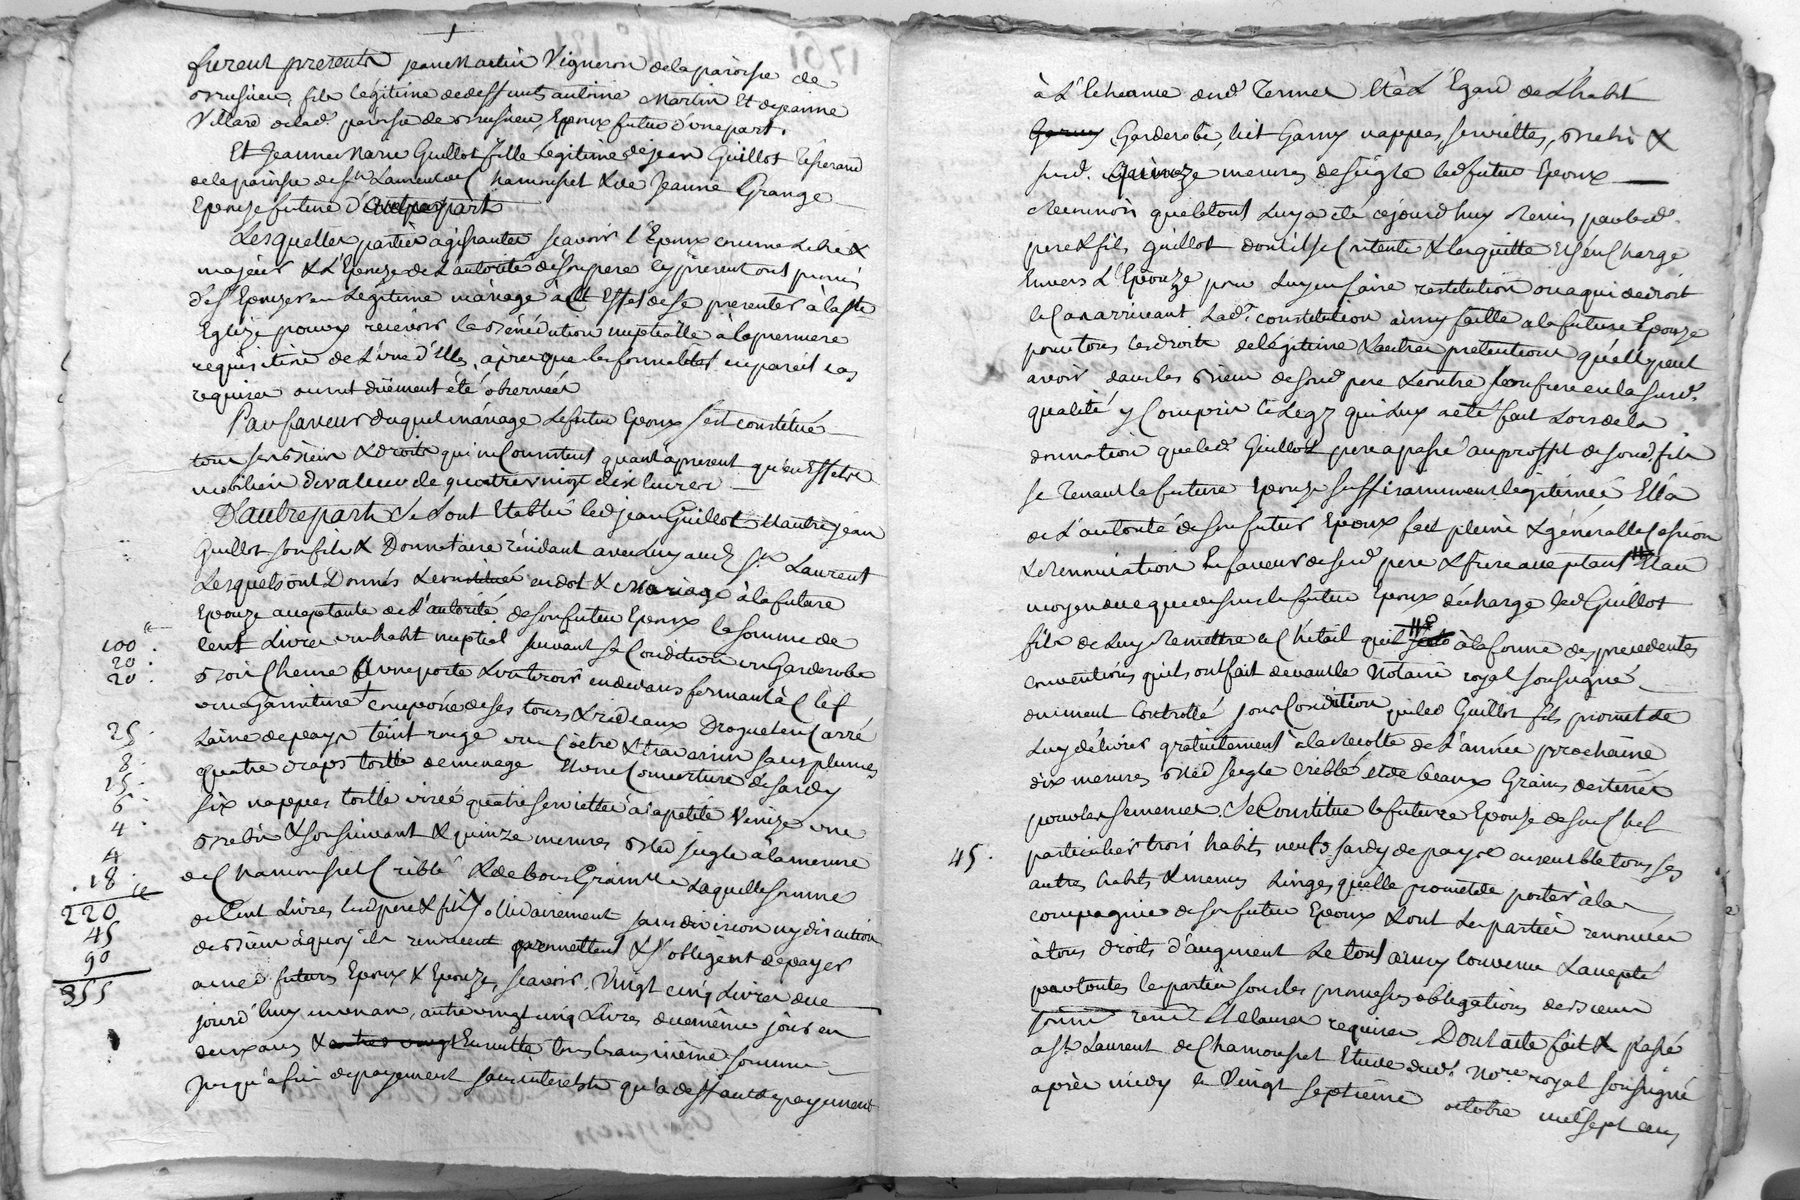 furent presents jean Martin Vigneron de la paroisse de
Brusieu, fils legitime de deffunts antoine Martin Et de jeanne
Villard de lad. paroisse de Brusieu, Epoux futur d'une part.
Et Jeanne Marie Guillot fille legitime de jean Guillot
de la paroisse de St Laurent de Chamousset & de Jeanne Grange
Epouse future d'autre part
Lesquelles parties agissantes scavoir l'Epoux comme Libre &
majeur & L'Epouze de L'autorité de son pere icy present ont promis
de s'Epouzer en Légitime mariage à cet Effet de se presenter à la ste
Eglize pour y recevoir la Bénédiction nuptialle à la premiere
requisition de L'une d'Elles, apres que les formalités en pareil cas
requises auront düement été observées
En faveur duquel mariage Le futur Epoux s'est constitué
tous ses Biens & droits qui ne Consistent quant à present qu'en Effets
mobiliers de valeur de quatre vingt dix livres
D'autre part Se sont Etablis led jean Guillot & autre jean
Guillot son fils & Donnataire résidant avec Luy aud St Laurent
Lesquels ont Donnés & constitué en dot & Mariage à la future
Epouze acceptante de L'autorité de son futur Epoux la somme de
100 Cent Livres un habit nuptial suivant sa Condition un Garderobe
20 Bois Chesne à une porte & un tiroir en devans fermant à Clef
20 une garniture composée de ses tours & rideaux Droguet en Carré
25 Laine de pays teint rouge un Coëtre & traversin sans plumes
8 quatre draps toille de menage Et une Couverture de sardy
15 six nappes toille quatre serviettes à la petite Venize une
6 Brebis & son suivant & quinze mesures Bled seigle à la mesure
4 de Chamousset Criblé & de bons Grains Laquelle somme
4 de Cent Livres lesd pere & fils solidairement sans division ny discution
18 de Biens à quoy ils renoncent promettent & s'obligent de payer
220 auxd futurs Epoux & Epouze, scavoir, Vingt cinq Livres de ce
45 jourd'huy en un an, autre vingt cinq Livres du même jour en
90 deux ans & Ensuitte tous les ans même somme
355 jusqu'à fin de payement sans interests qu'à deffaut de payement
à L'echeance dud. Terme Et à L'Egard de L'habit
Garderobe, Lit Garny nappes, serviettes, Brebis &
susd. Quinze mesures de seigle led futur Epoux
reconnoit que le tout Luy a été cejourd'huy remis par lesd.
pere & fils guillot dont il se Contente & les quitte Et s'en Charge
Envers L'Epouze pour Luy en faire restitution ou à qui de droit
le Cas arrivant Lad. constitution ainsy faitte à la future Epouze
pour tous les droits de légitime & autres pretentions qu'elle peut
avoir dans les Biens de sond pere & contre son frere en la susd.
qualité y Compris le Legz qui Luy a été fait Lors de la
donnation que led. Guillot pere a passé au proffit de sond. fils
se Tenant la future Epouze suffisamment legitimée Et à
de L'autorité de son futur Epoux fait pleine & généralle Cession
& renonciation En faveur de sesd pere & frere acceptans Et au
moyen de ce que dessus le futur Epoux décharge led Guillot
fils de Luy remettre le Chétail qu'il à la forme des precedentes
conventions qu'ils ont fait devant le Notaire royal soussigné
duement Controllé sous Condition que led Guillot fils promet de
Luy délivrer gratuitement à la recolte de L'année prochaine
dix mesures Bled seigle criblé et de beaux Grains destinés
pour les semences. Se Constitue la future Epouse de son Chef
45 particulier trois habits neufs sardy de pays ensemble tous ses
autres habits & menus Linges qu'elle promet de porter à la
compagnie de son futur Epoux & ont Les parties renoncé
à tous droits d'augment Le tout ainsy Convenu & accepté
par toutes les parties sous les promesses obligations de Biens
soumis. renon. Et clauses requises Dont acte fait & passé
à St. Laurent de Chamousset Etude dud. Nore royal soussigné
après midy le Vingt septieme octobre mil sept cens